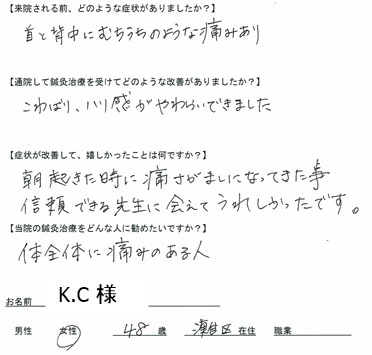 【来院される前、どのような症状がありましたか？】
首と背中にむちうちのような痛みあり
【通院して鍼灸治療を受けてどのような改善がありましたか？】
こわばり、ハリ感がやわらいできました
【症状が改善して、嬉しかったことは何ですか？】
朝起きた時に痛さがましになってきた事
信頼できる先生に会えてうれしかったです。
【当院の鍼灸治療をどんな人に勧めたいですか？】
体全体に痛みのある人
お名前 K.C 様
男性 女性 48 歳 灘区 在住 職業